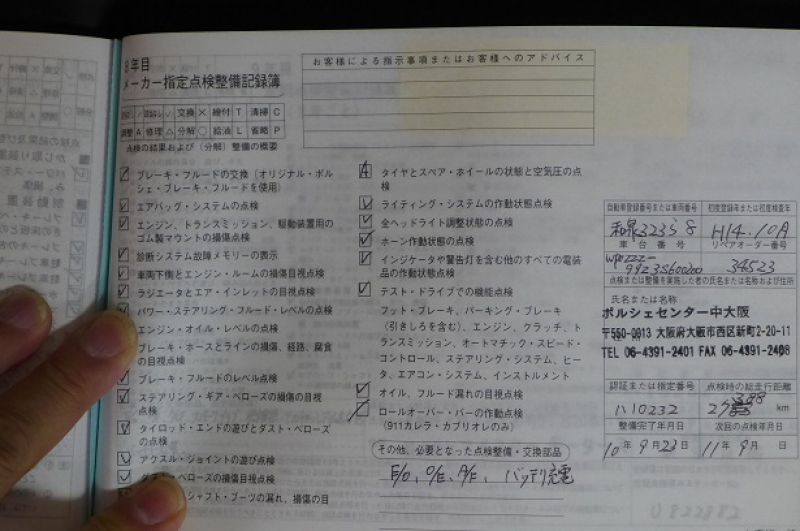 年目
メーカー指定点検整備記録簿
交換 × 締付 T 清掃 C
調整 A 修理 △ 分解 ○ 給油 L 省略 P
点検の結果および（分解）整備の概要
ブレーキ・フルードの交換（オリジナル・ポル
シェ・ブレーキ・フルードを使用）
エアバッグ・システムの点検
エンジン、トランスミッション、駆動装置用の
ゴム製マウントの損傷点検
診断システム故障メモリーの表示
車両下側とエンジン・ルームの損傷目視点検
ラジエータとエア・インレットの目視点検
パワー・ステアリング・フルード・レベルの点検
エンジン・オイル・レベルの点検
ブレーキ・ホースとラインの損傷、経路、腐食
の目視点検
ブレーキ・フルードのレベル点検
ステアリング・ギア・ベローズの損傷の目視
点検
タイロッド・エンドの遊びとダスト・ベローズ
の点検
アクスル・ジョイントの遊び点検
ベローズの損傷目視点検
シャフト・ブーツの漏れ、損傷の目
お客様による指示事項またはお客様へのアドバイス
A タイヤとスペア・ホイールの状態と空気圧の点
検
ライティング・システムの作動状態点検
全ヘッドライト調整状態の点検
ホーン作動状態の点検
インジケータや警告灯を含む他のすべての電装
品の作動状態点検
テスト・ドライブでの機能点検
フット・ブレーキ、パーキング・ブレーキ
（引きしろを含む）、エンジン、クラッチ、ト
ランスミッション、オートマチック・スピード・
コントロール、ステアリング・システム、ヒー
タ、エアコン・システム、インストルメント
オイル、フルード漏れの目視点検
ロールオーバー・バーの作動点検
（911カレラ・カブリオレのみ）
その他、必要となった点検整備・交換部品
E/O、O/E、A/E、バッテリ充電
自動車登録番号または車両番号 初度登録年または初度検査年
H14.10A
車台番号 リペアオーダー番号
WP0ZZZ-
99Z3S600200 34523
点検または整備を実施した者の氏名または名称および住所
氏名または名称
ポルシェセンター中大阪
〒550-0013 大阪府大阪市西区新町2-20-11
TEL 06-4391-2401 FAX 06-4391-2408
認証または指定番号 点検時の総走行距離
km
整備完了年月日 次回の点検年月日
10年 9月 23日 11年 9月 日